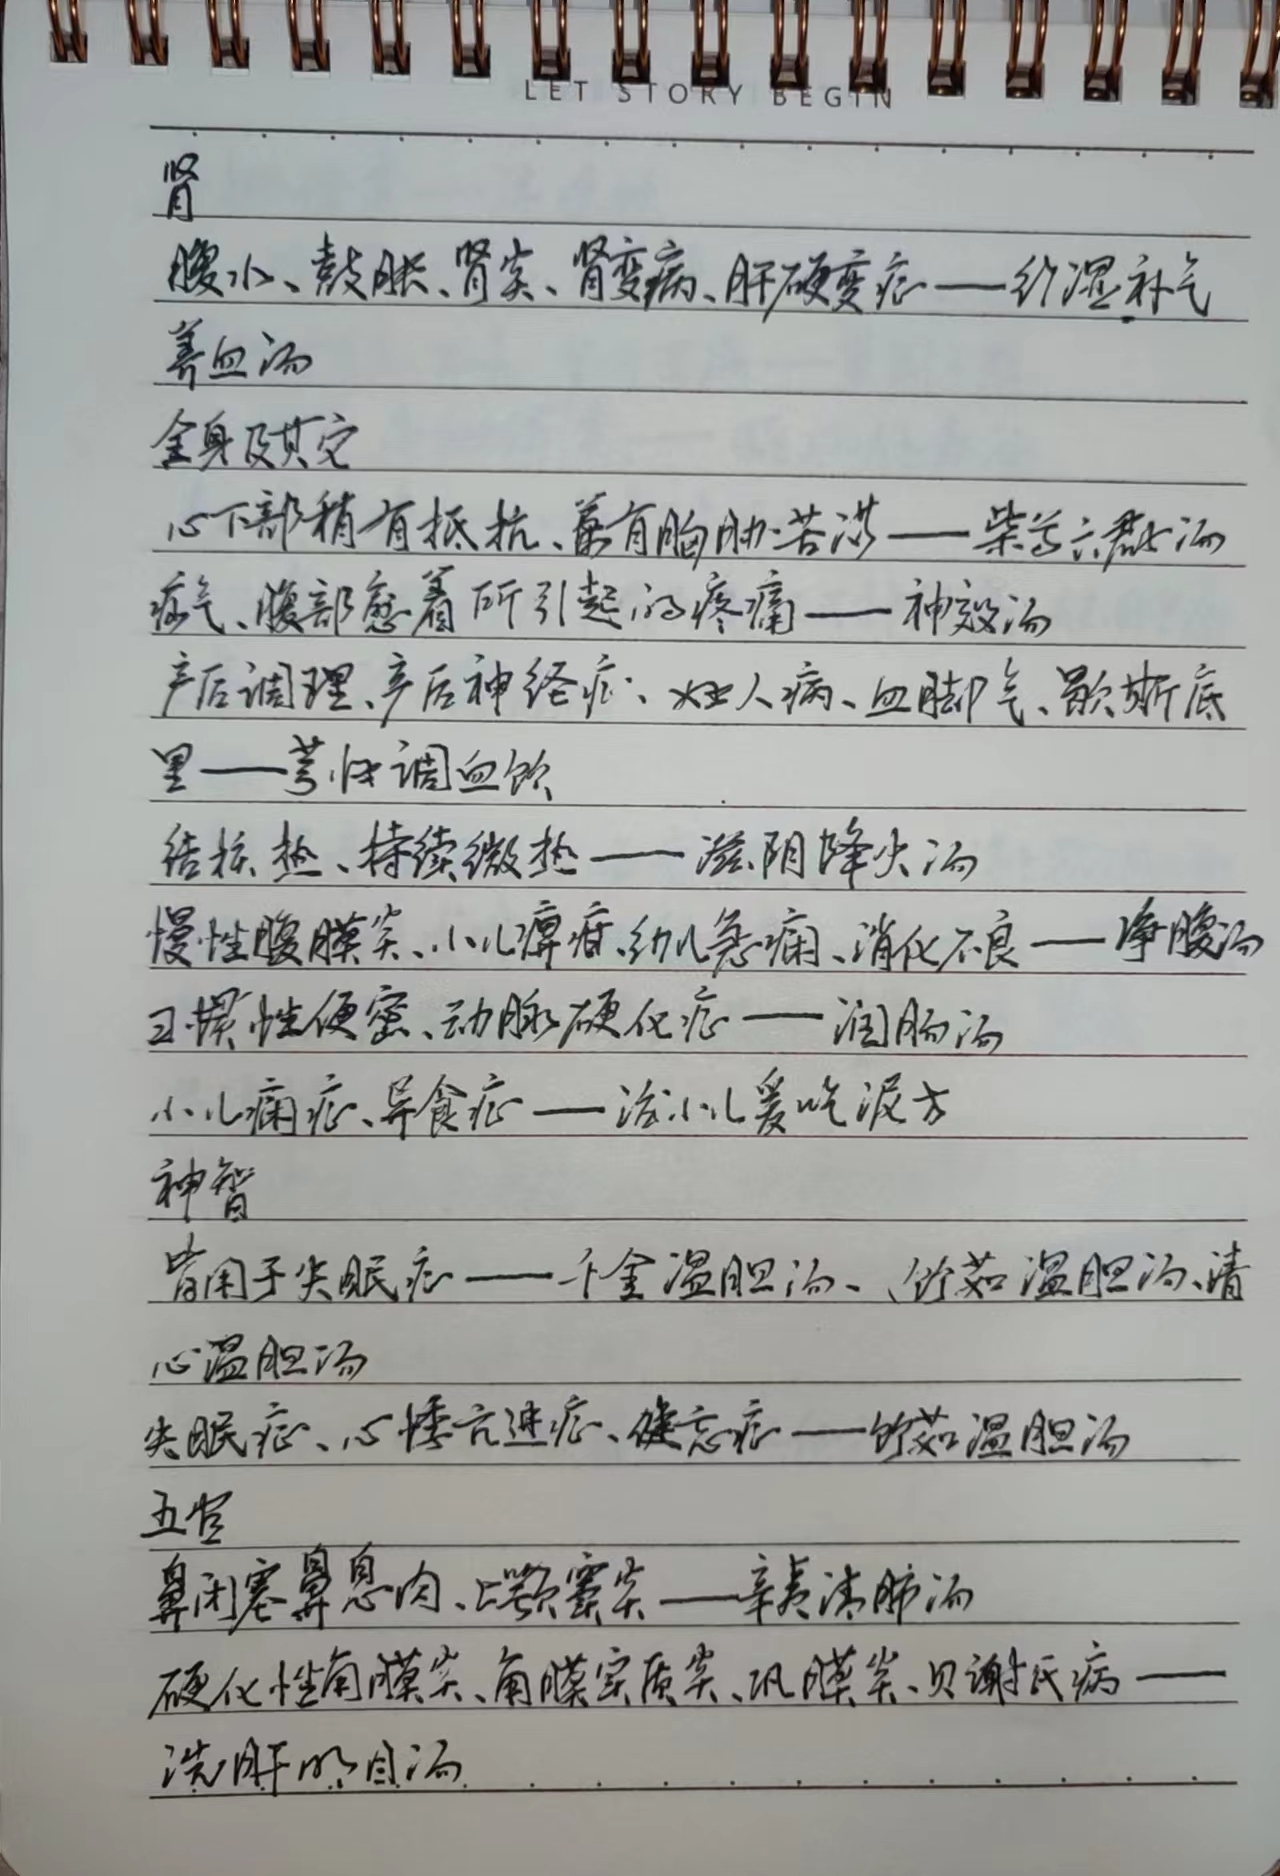 LET STORY BEGIN
肾
腹水、鼓胀、肾炎、肾变病、肝硬变症——分湿补气
养血汤
全身及其它
心下部稍有抵抗、兼有胸胁苦满——柴芍六君子汤
疝气、腹部愈着所引起的疼痛——神效汤
产后调理、产后神经症、妇人病、血脚气、歇斯底
里——芎归调血饮
结核热、持续微热——滋阴降火汤
慢性腹膜炎、小儿脾疳、幼儿急痫、消化不良——净腹汤
习惯性便密、动脉硬化症——润肠汤
小儿痫症、异食症——治小儿爱吃泥方
神智
皆用于失眠症——千金温胆汤、竹茹温胆汤、清
心温胆汤
失眠症、心悸亢进症、健忘症——竹茹温胆汤
五官
鼻闭塞鼻息肉、上颚窦炎——辛夷清肺汤
硬化性角膜炎、角膜实质炎、巩膜炎、贝谢氏病——
洗肝明目汤